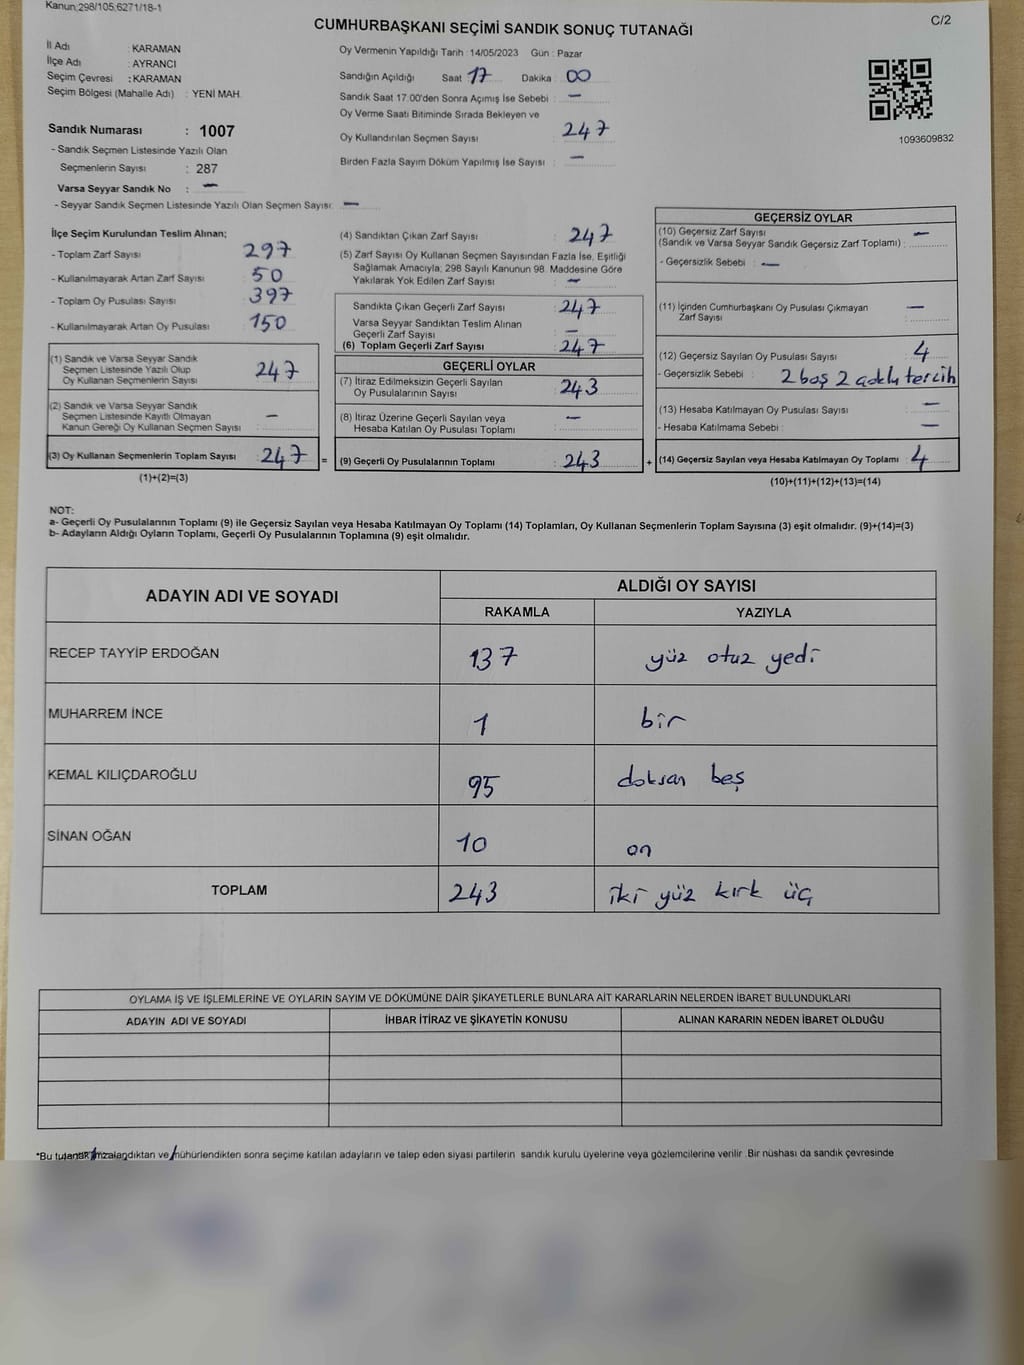 Kanun;298/105,6271/18-1
CUMHURBAŞKANI SEÇİMİ SANDIK SONUÇ TUTANAĞI
C/2
İl Adı : KARAMAN
İlçe Adı : AYRANCI
Seçim Çevresi : KARAMAN
Seçim Bölgesi (Mahalle Adı) : YENİ MAH.
Sandık Numarası : 1007
- Sandık Seçmen Listesinde Yazılı Olan
Seçmenlerin Sayısı : 287
Varsa Seyyar Sandık No : —
- Seyyar Sandık Seçmen Listesinde Yazılı Olan Seçmen Sayısı: —
Oy Vermenin Yapıldığı Tarih : 14/05/2023 Gün : Pazar
Sandığın Açıldığı Saat 17 Dakika : 00
Sandık Saat 17.00'den Sonra Açımış İse Sebebi : —
Oy Verme Saati Bitiminde Sırada Bekleyen ve
Oy Kullandırılan Seçmen Sayısı : 247
Birden Fazla Sayım Döküm Yapılmış İse Sayısı : —
1093609832
İlçe Seçim Kurulundan Teslim Alınan;
- Toplam Zarf Sayısı : 297
- Kullanılmayarak Artan Zarf Sayısı : 50
- Toplam Oy Pusulası Sayısı : 397
- Kullanılmayarak Artan Oy Pusulası : 150
(1) Sandık ve Varsa Seyyar Sandık
Seçmen Listesinde Yazılı Olup
Oy Kullanan Seçmenlerin Sayısı : 247
(2) Sandık ve Varsa Seyyar Sandık
Seçmen Listesinde Kayıtlı Olmayan
Kanun Gereği Oy Kullanan Seçmen Sayısı : —
(3) Oy Kullanan Seçmenlerin Toplam Sayısı : 247 =
(1)+(2)=(3)
(4) Sandıktan Çıkan Zarf Sayısı : 247
(5) Zarf Sayısı Oy Kullanan Seçmen Sayısından Fazla İse, Eşitliği
Sağlamak Amacıyla; 298 Sayılı Kanunun 98. Maddesine Göre
Yakılarak Yok Edilen Zarf Sayısı : —
Sandıkta Çıkan Geçerli Zarf Sayısı : 247
Varsa Seyyar Sandıktan Teslim Alınan
Geçerli Zarf Sayısı : —
(6) Toplam Geçerli Zarf Sayısı : 247
GEÇERLİ OYLAR
(7) İtiraz Edilmeksizin Geçerli Sayılan
Oy Pusulalarının Sayısı : 243
(8) İtiraz Üzerine Geçerli Sayılan veya
Hesaba Katılan Oy Pusulası Toplamı : —
(9) Geçerli Oy Pusulalarının Toplamı : 243 +
GEÇERSİZ OYLAR
(10) Geçersiz Zarf Sayısı —
(Sandık ve Varsa Seyyar Sandık Geçersiz Zarf Toplamı) :
- Geçersizlik Sebebi : —
(11) İçinden Cumhurbaşkanı Oy Pusulası Çıkmayan
Zarf Sayısı : —
(12) Geçersiz Sayılan Oy Pusulası Sayısı : 4
- Geçersizlik Sebebi : 2 boş 2 adklu tercih
(13) Hesaba Katılmayan Oy Pusulası Sayısı : —
- Hesaba Katılmama Sebebi : —
(14) Geçersiz Sayılan veya Hesaba Katılmayan Oy Toplamı : 4
(10)+(11)+(12)+(13)=(14)
NOT:
a- Geçerli Oy Pusulalarının Toplamı (9) ile Geçersiz Sayılan veya Hesaba Katılmayan Oy Toplamı (14) Toplamları, Oy Kullanan Seçmenlerin Toplam Sayısına (3) eşit olmalıdır. (9)+(14)=(3)
b- Adayların Aldığı Oyların Toplamı, Geçerli Oy Pusulalarının Toplamına (9) eşit olmalıdır.
ADAYIN ADI VE SOYADI
ALDIĞI OY SAYISI
RAKAMLA YAZIYLA
RECEP TAYYİP ERDOĞAN 137 yüz otuz yedi
MUHARREM İNCE 1 bir
KEMAL KILIÇDAROĞLU 95 doksan beş
SİNAN OĞAN 10 on
TOPLAM 243 iki yüz kırk üç
OYLAMA İŞ VE İŞLEMLERİNE VE OYLARIN SAYIM VE DÖKÜMÜNE DAİR ŞİKAYETLERLE BUNLARA AİT KARARLARIN NELERDEN İBARET BULUNDUKLARI
ADAYIN ADI VE SOYADI İHBAR İTİRAZ VE ŞİKAYETİN KONUSU ALINAN KARARIN NEDEN İBARET OLDUĞU
*Bu tutanak imzalandıktan ve mühürlendikten sonra seçime katılan adayların ve talep eden siyasi partilerin sandık kurulu üyelerine veya gözlemcilerine verilir .Bir nüshası da sandık çevresinde